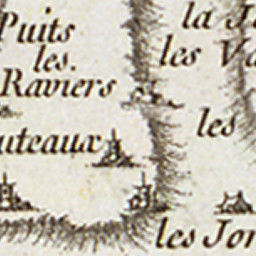 Puits
les.
Raviers
uteaux
la J
les Va
les
les Jon